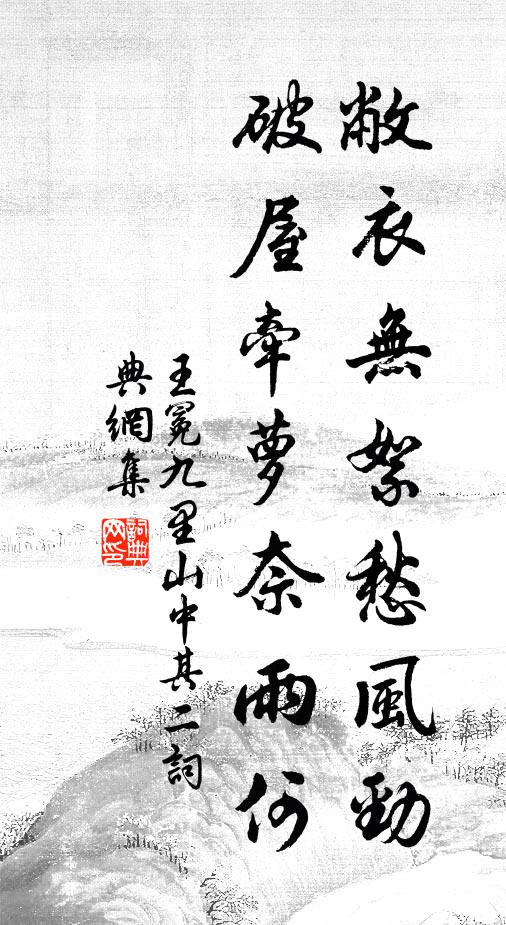 敝衣無絮愁風勁
破屋牽蘿奈雨何
王冕九里山中其二詞
典網集
詞典
网印